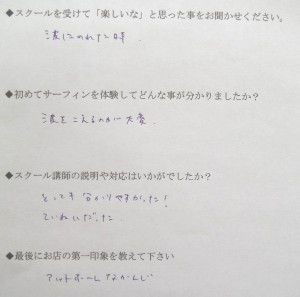 ◆スクールを受けて「楽しいな」と思った事をお聞かせください。
波にのれた時
◆初めてサーフィンを体験してどんな事が分かりましたか?
波をこえるのが大変。
◆スクール講師の説明や対応はいかがでしたか?
とっても分かりやすかった!
ていねいだった
◆最後にお店の第一印象を教えて下さい
アットホームなかんじ